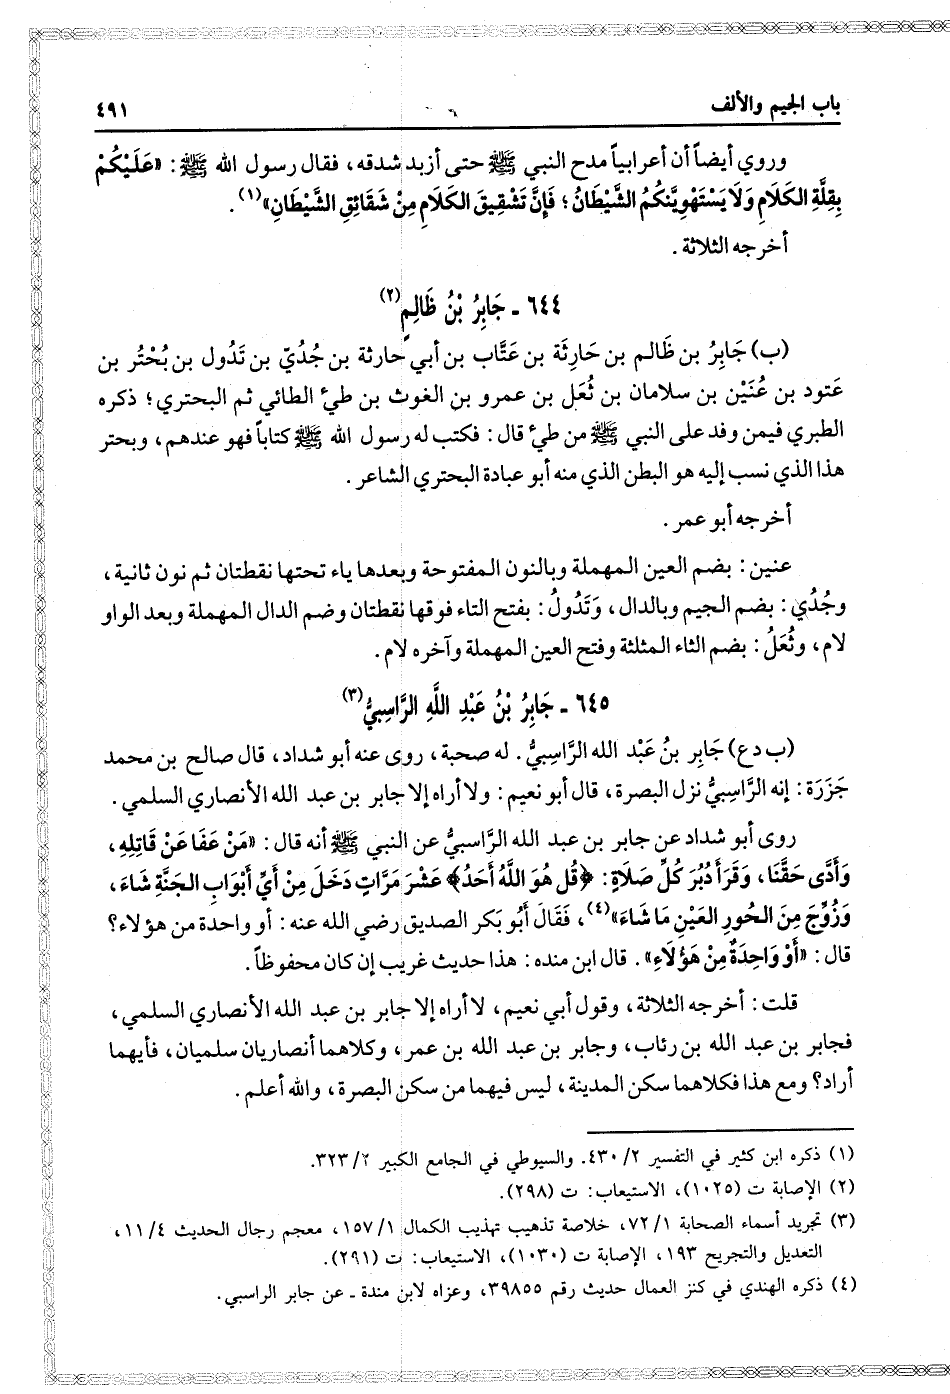 باب الجيم والألف ٤٩١
وروي أيضاً أن أعرابياً مدح النبي ﷺ حتى أزبد شدقه، فقال رسول الله ﷺ: «عَلَيْكُمْ
بِقِلَّةِ الكَلَامِ وَلَا يَسْتَهْوِيَنَّكُمُ الشَّيْطَانُ؛ فَإِنَّ تَشْقِيقَ الكَلَامِ مِنْ شَقَائِقِ الشَّيْطَانِ»(١).
أخرجه الثلاثة.
٦٤٤ ـ جَابِرُ بْنُ ظَالِمٍ(٢)
(ب) جَابِرُ بن ظَالم بن حَارِثَة بن عَتَّاب بن أبي حارثة بن جُدُيّ بن تَدُول بن بُحْتُر بن
عَتود بن عُنَيْن بن سلامان بن ثُعَل بن عمرو بن الغوث بن طيء الطائي ثم البحتري؛ ذكره
الطبري فيمن وفد على النبي ﷺ من طيء قال: فكتب له رسول الله ﷺ كتاباً فهو عندهم، وبحتر
هذا الذي نسب إليه هو البطن الذي منه أبو عبادة البحتري الشاعر.
أخرجه أبو عمر.
عنين: بضم العين المهملة وبالنون المفتوحة وبعدها ياء تحتها نقطتان ثم نون ثانية،
وجُدُيّ: بضم الجيم وبالدال، وَتَدُولُ: بفتح التاء فوقها نقطتان وضم الدال المهملة وبعد الواو
لام، وثُعَلُ: بضم الثاء المثلثة وفتح العين المهملة وآخره لام.
٦٤٥ ـ جَابِرُ بْنُ عَبْدِ اللَّهِ الرَّاسِبيُّ(٣)
(ب دع) جَابِر بنُ عَبْد الله الرَّاسِبيُّ. له صحبة، روى عنه أبو شداد، قال صالح بن محمد
جَزَرَة: إنه الرَّاسِبيُّ نزل البصرة، قال أبو نعيم: ولا أراه إلا جابر بن عبد الله الأنصاري السلمي.
روى أبو شداد عن جابر بن عبد الله الرَّاسبيُّ عن النبي ﷺ أنه قال: «مَنْ عَفَا عَنْ قَاتِلِهِ،
وَأَدَّى حَقَّنَا، وَقَرَأَ دُبُرَ كُلِّ صَلَاةٍ: ﴿قُل هُوَ اللَّهُ أَحَدُ﴾ عَشْرَ مَرَّاتٍ دَخَلَ مِنْ أَيِّ أَبْوَابِ الجَنَّةِ شَاءَ،
وَزُوِّجَ مِنَ الحُورِ العَيْنِ مَا شَاءَ»(٤)، فَقَالَ أَبُو بَكر الصديق رضي الله عنه: أو واحدة من هؤلاء؟
قال: «أَوْ وَاحِدَةٌ مِنْ هَؤُلَاءِ». قال ابن منده: هذا حديث غريب إن كان محفوظاً.
قلت: أخرجه الثلاثة، وقول أبي نعيم، لا أراه إلا جابر بن عبد الله الأنصاري السلمي،
فجابر بن عبد الله بن رئاب، وجابر بن عبد الله بن عمر، وكلاهما أنصاريان سلميان، فأيهما
أراد؟ ومع هذا فكلاهما سكن المدينة، ليس فيهما من سكن البصرة، والله أعلم.
(١) ذكره ابن كثير في التفسير ٢/ ٤٣٠. والسيوطي في الجامع الكبير ٢/ ٣٢٣.
(٢) الإصابة ت (١٠٢٥)، الاستيعاب: ت (٢٩٨).
(٣) تجريد أسماء الصحابة ١/ ٧٢، خلاصة تذهيب تهذيب الكمال ١/ ١٥٧، معجم رجال الحديث ٤/ ١١،
التعديل والتجريح ١٩٣، الإصابة ت (١٠٣٠)، الاستيعاب: ت (٢٩١).
(٤) ذكره الهندي في كنز العمال حديث رقم ٣٩٨٥٥، وعزاه لابن مندة ـ عن جابر الراسبي.